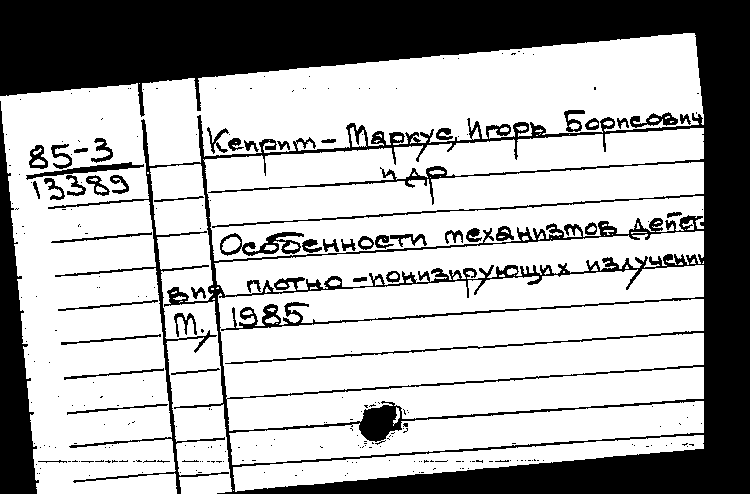 85-3
13389
Кеприт - Маркус, Игорь Борисович
и др
Особенности механизмов дейст-
вия плотно-ионизирующих излучении
М., 1985.